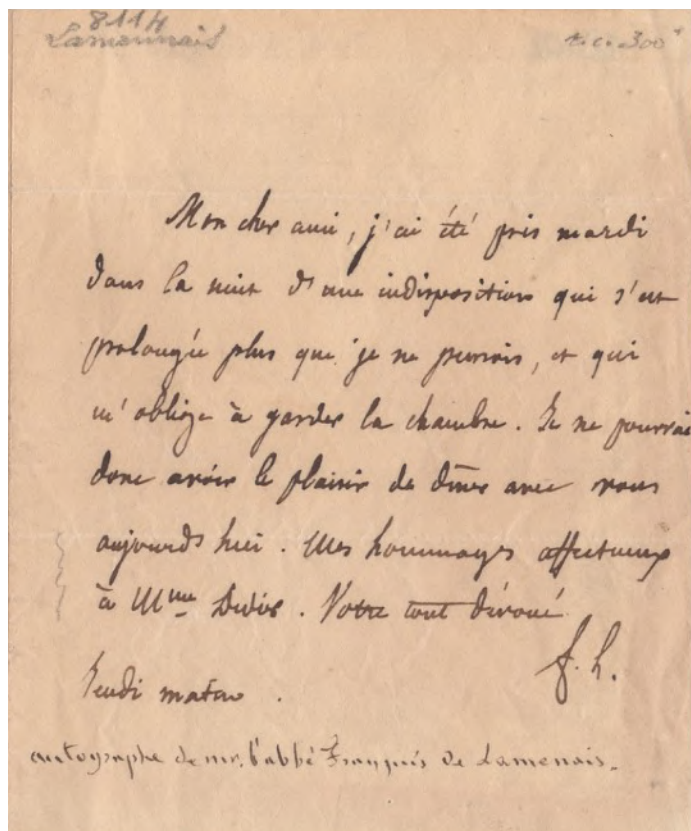 8114
Lamennais
t.c. 300
Mon cher ami, j'ai été pris mardi
dans la nuit d'une indisposition qui s'est
prolongée plus que je ne pensois, et qui
m'oblige à garder la chambre. Je ne pourrai
donc avoir le plaisir de dîner avec vous
aujourd'hui. Mes hommages affectueux
à Mme Didier. Votre tout dévoué
f. L.
Jeudi matin.
autographe de mr. l'abbé François de Lamenais.